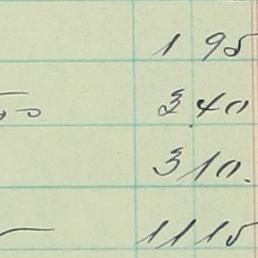 1 95
50 3 40
3 10.
11 15